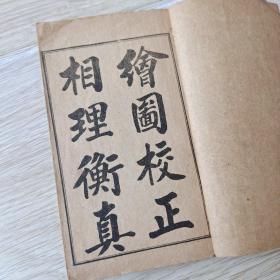 繪圖校正
相理衡真